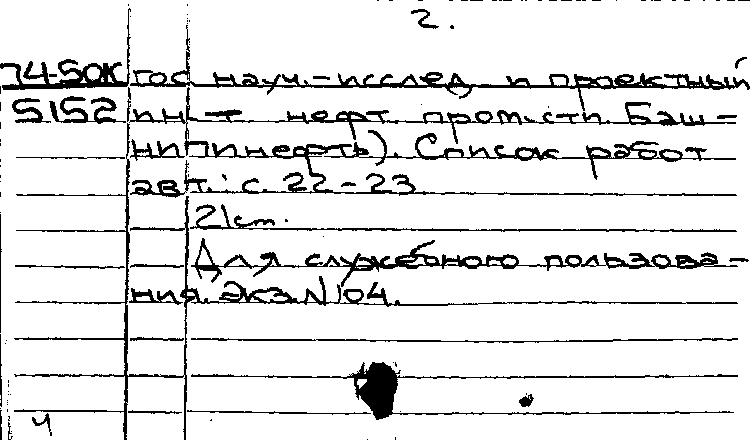 2.
74-50К гос науч.-исслед и проектный
5152 ин-т нефт. пром.сти. Баш-
НИПИнефть). Список работ
авт.: с. 22-23.
21 cm.
Для служебного пользова-
ния. Экз. N 104.
4